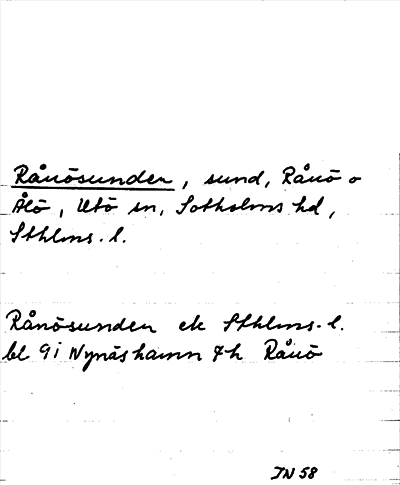 Rånösunden, sund, Rånö o
Ålö, Utö sn, Sotholms hd,
Sthlms. l.
Rånösunden ek Sthlms. l.
bl 9i Nynäshamn 7h Rånö
JN 58